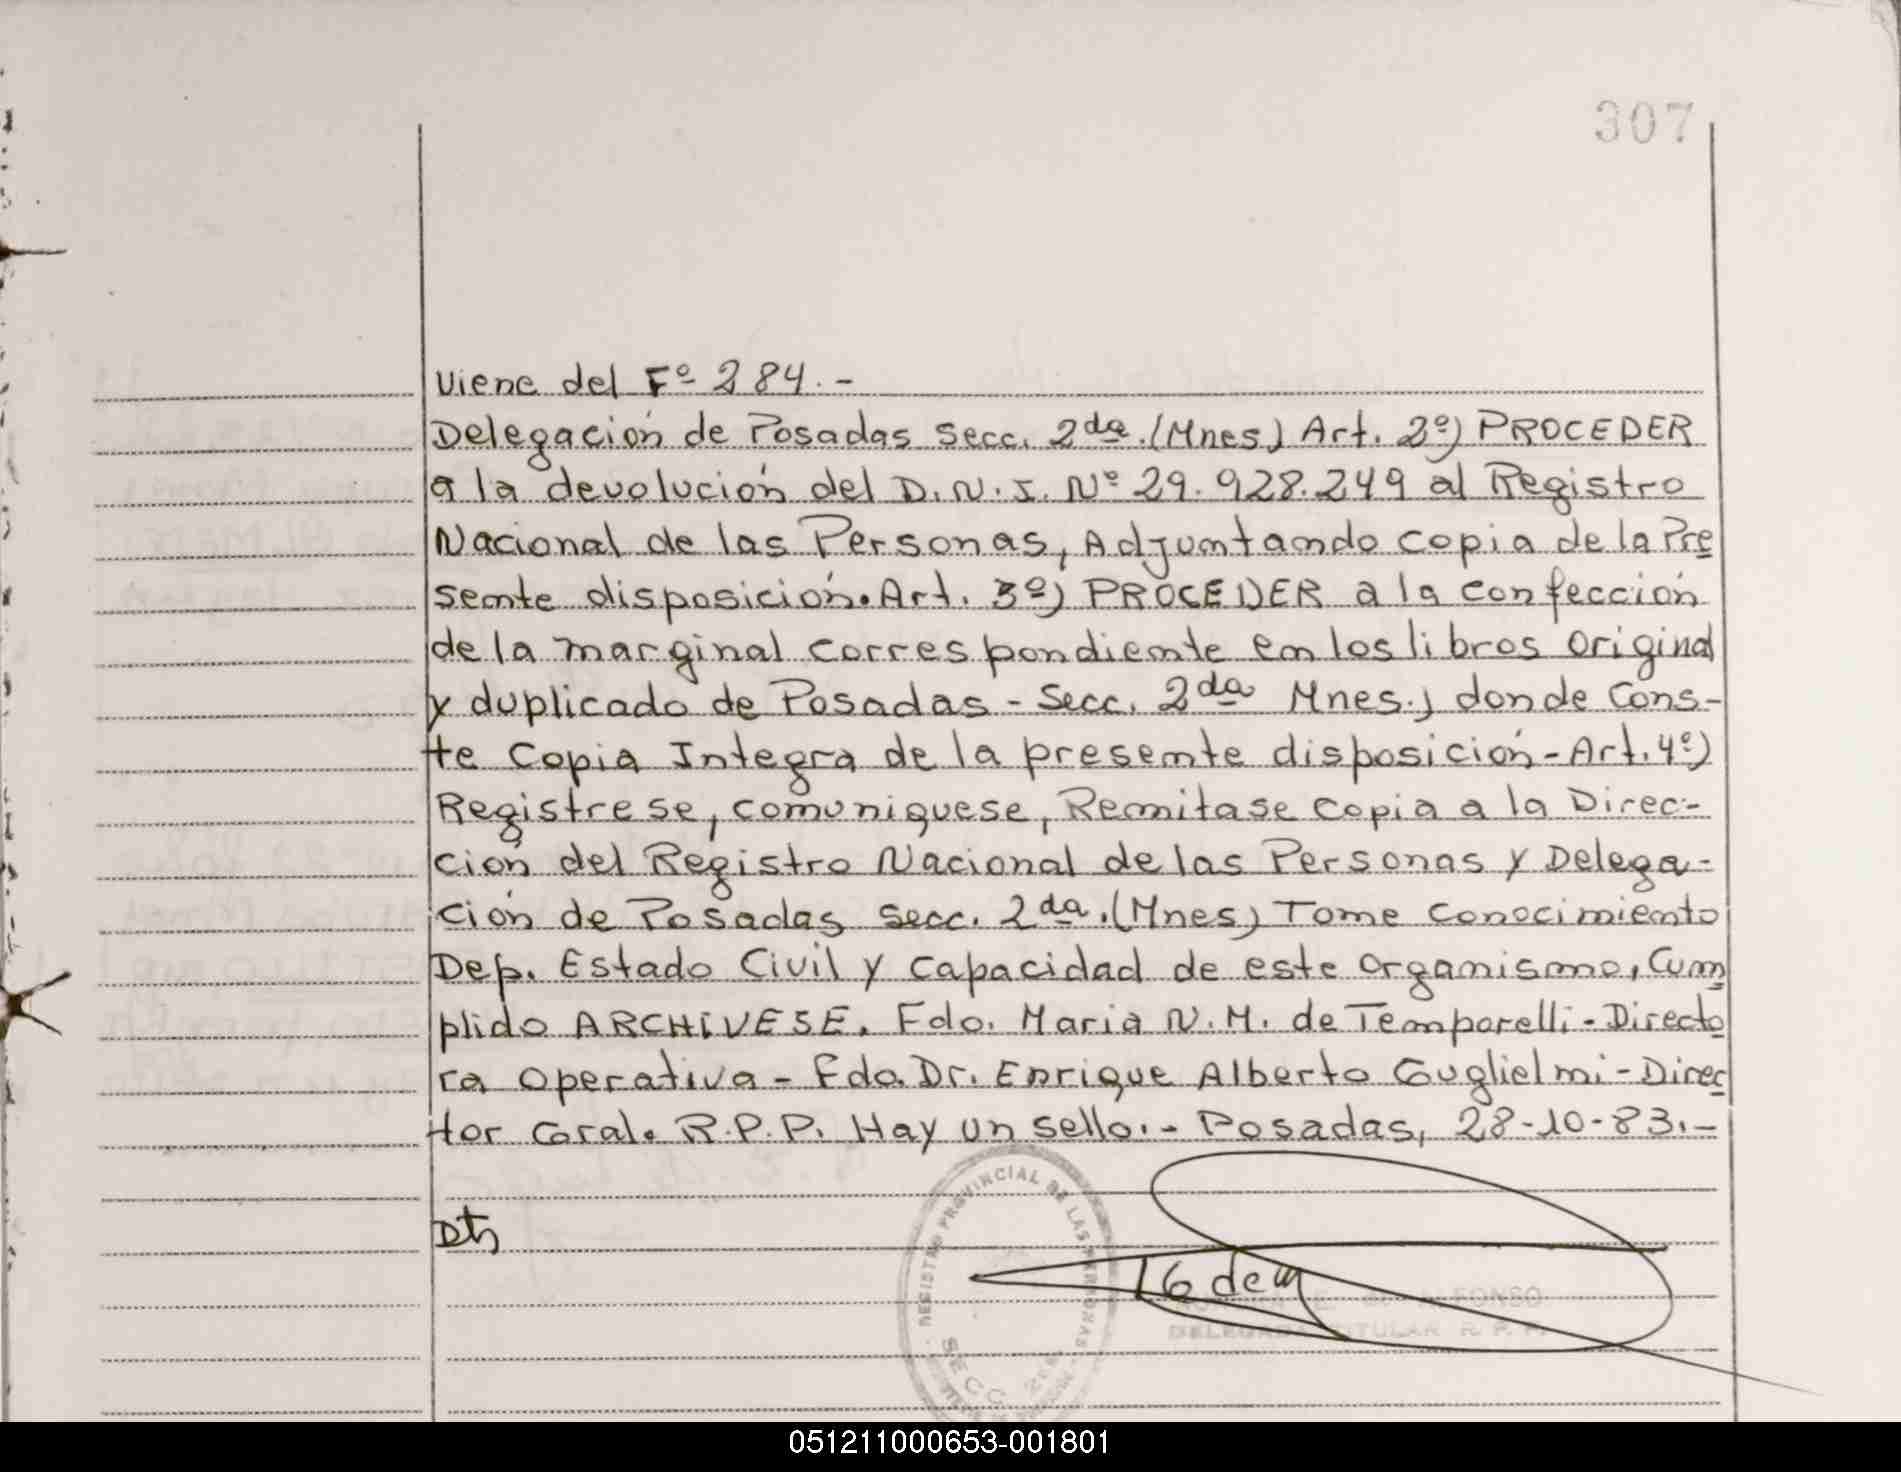 307
Viene del Fº 284.-
Delegación de Posadas Secc. 2da.(Mnes) Art. 2º) PROCEDER
a la devolución del D.N.I. Nº 29.928.249 al Registro
Nacional de las Personas, Adjuntando copia de la Pre
sente disposición. Art. 3º) PROCEDER a la confección
de la marginal correspondiente en los libros original
y duplicado de Posadas - Secc. 2da Mnes., donde Cons-
te Copia Integra de la presente disposición - Art. 4º)
Registrese, comuniquese, Remitase copia a la Direc-
ción del Registro Nacional de las Personas y Delega-
ción de Posadas Secc. 2da.(Mnes) Tome conocimiento
Dep. Estado Civil y capacidad de este organismo, Cum
plido ARCHIVESE. Fdo. Maria N. M. de Temporelli - Directo
ra Operativa - Fdo. Dr. Enrique Alberto Guglielmi - Direc
tor Gral. R.P.P. Hay un sello.- Posadas, 28-10-83.-
REGISTRO PROVINCIAL DE LAS PERSONAS
SECC.
DELEGADA TITULAR R. P. P.
051211000653-001801